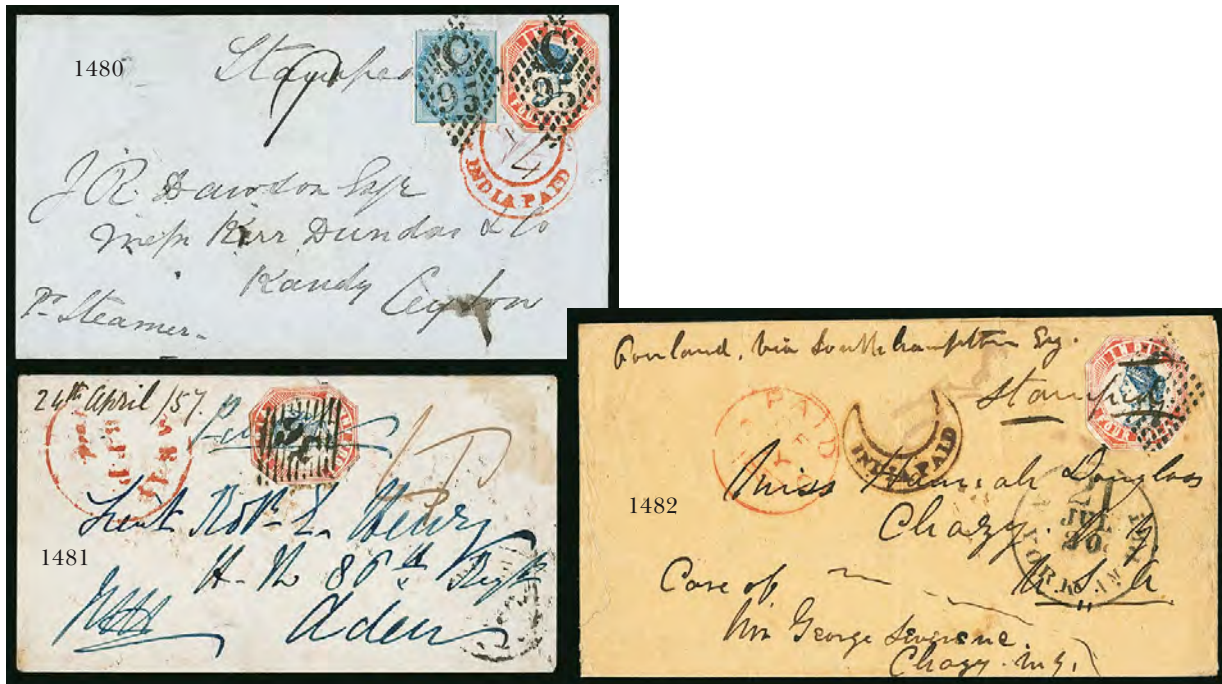 1480
Stamped
C
95
C
95
INDIA PAID
J R. Dawson Esqr
Messrs Kerr Dundas & Co
Kandy
Ceylon
Pr Steamer
1481
24th April /57.
Lieut Robt
Henry
H. M 86th Regt
Aden
1482
via Southampton Eng.
Stamped
PAID
INDIA PAID
Miss Hannah Douglass
Chazy. N Y
21
JUL
30
U.S.A
Care of
Mr George
Chazy. N.Y.